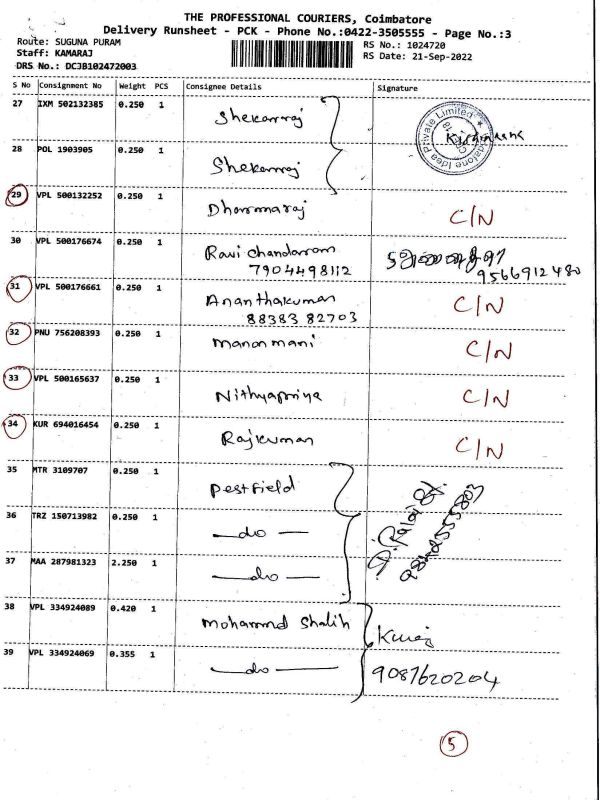 THE PROFESSIONAL COURIERS, Coimbatore
Delivery Runsheet - PCK - Phone No.:0422-3505555 - Page No.:3
Route: SUGUNA PURAM
RS No.: 1024720
Staff: KAMARAJ
RS Date: 21-Sep-2022
DRS No.: DCJB102472003
S No Consignment No Weight PCS Consignee Details Signature
27 IXM 502132385 0.250 1 Shekarraj
28 POL 1903905 0.250 1 Shekarraj
29 VPL 500132252 0.250 1 Dharmaraj C/N
30 VPL 500176674 0.250 1 Ravi chandaram
7904498112 9566912480
31 VPL 500176661 0.250 1 Ananthakumar C/N
88383 82703
32 PNU 756208393 0.250 1 Manonmani C/N
33 VPL 500165637 0.250 1 Nithyapriya C/N
34 KUR 694016454 0.250 1 Rajkumar C/N
35 MTR 3109707 0.250 1 Pestfield
36 TRZ 150713982 0.250 1 —do—
37 MAA 287981323 2.250 1 —do—
38 VPL 334924089 0.420 1 Mohammd Shalih
39 VPL 334924069 0.355 1 —do— 9087620204
5